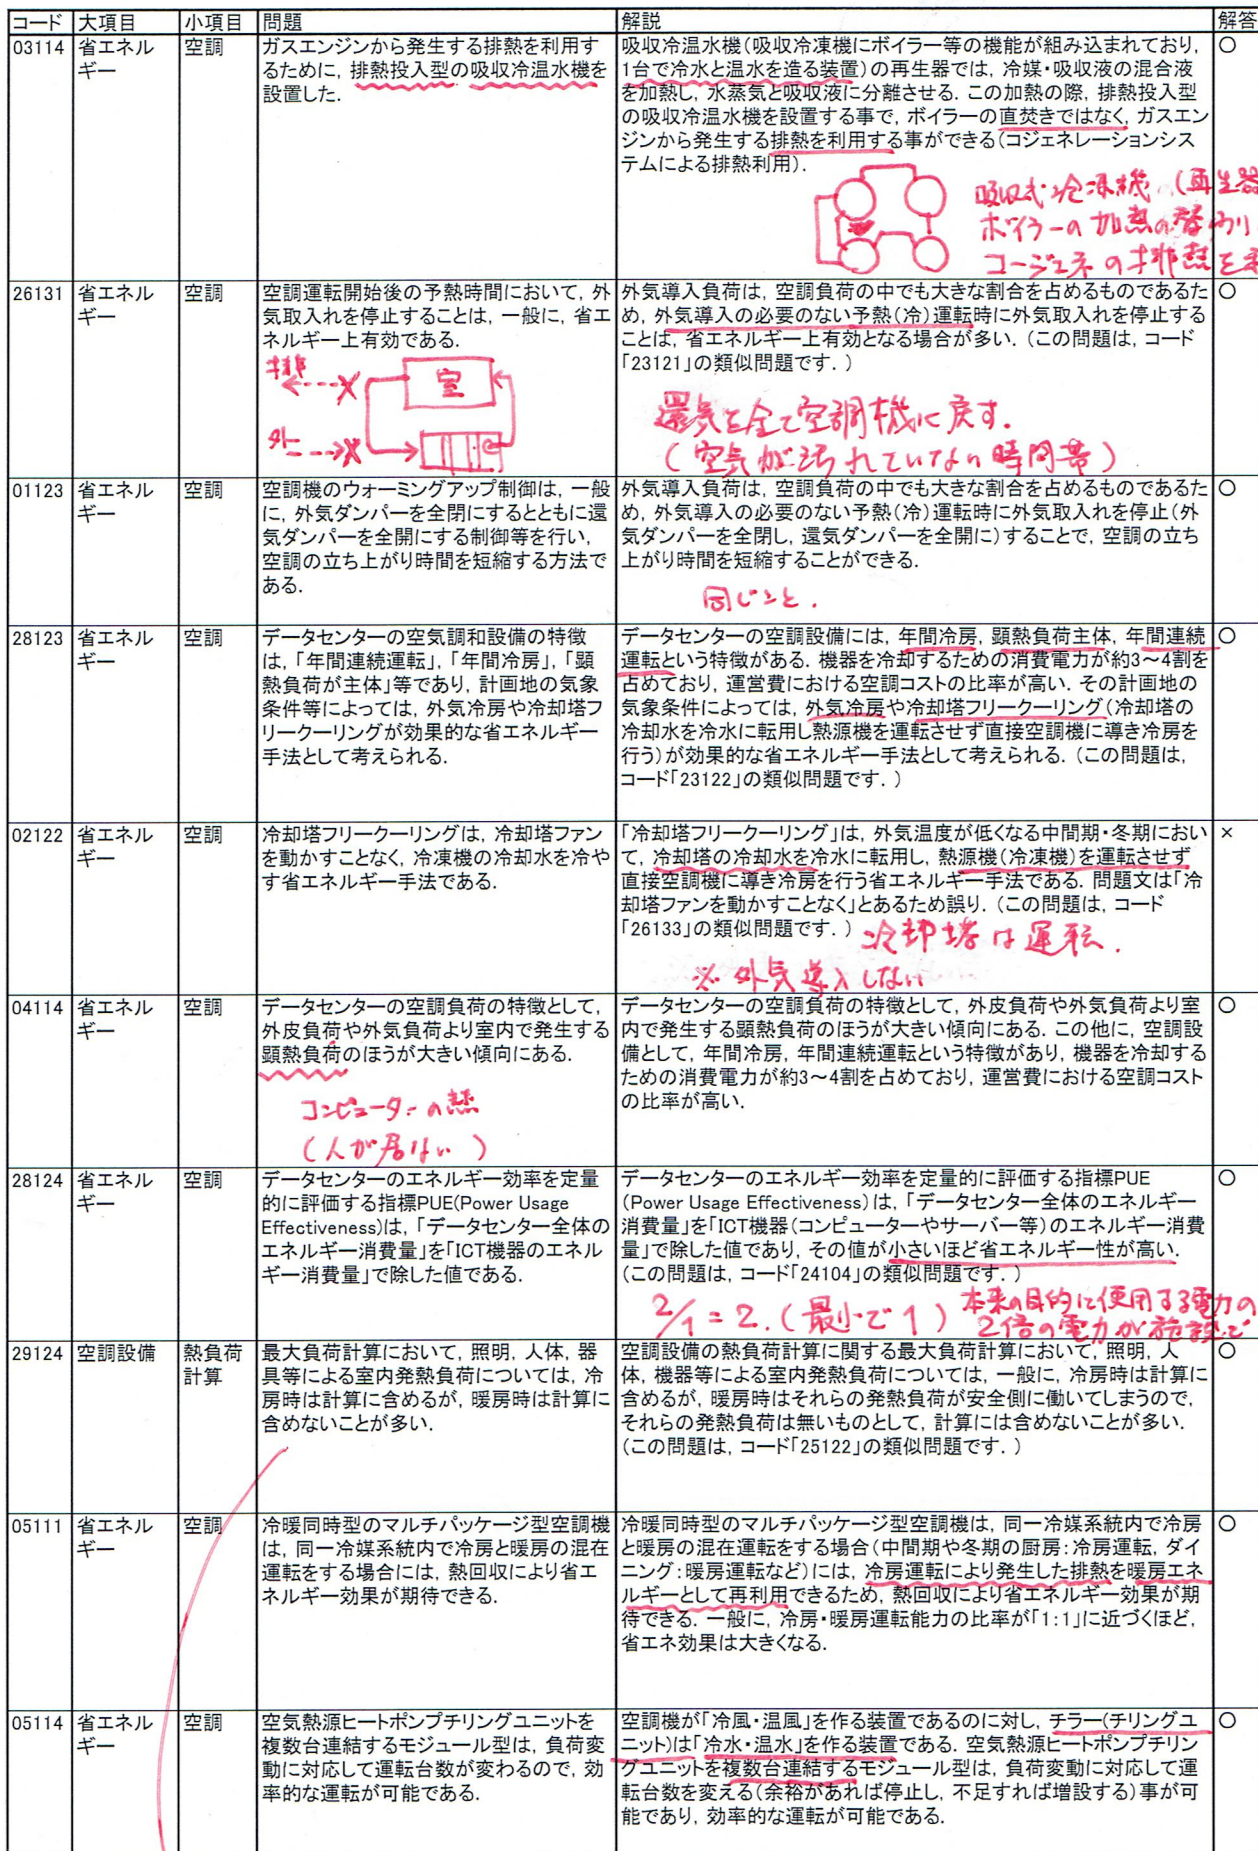 コード 大項目 小項目 問題 解説 解答
03114 省エネルギー 空調
ガスエンジンから発生する排熱を利用す
るために, 排熱投入型の吸収冷温水機を
設置した.
吸収冷温水機(吸収冷凍機にボイラー等の機能が組み込まれており,
1台で冷水と温水を造る装置)の再生器では, 冷媒・吸収液の混合液
を加熱し, 水蒸気と吸収液に分離させる. この加熱の際, 排熱投入型
の吸収冷温水機を設置する事で, ボイラーの直焚きではなく, ガスエン
ジンから発生する排熱を利用する事ができる(コジェネレーションシス
テムによる排熱利用).
○
吸収式冷凍機の(再生器
ボイラーの加熱の替わり
コージェネの排熱を
26131 省エネルギー 空調
空調運転開始後の予熱時間において, 外
気取入れを停止することは, 一般に, 省エ
ネルギー上有効である.
排
室
外
外気導入負荷は, 空調負荷の中でも大きな割合を占めるものであるた
め, 外気導入の必要のない予熱(冷)運転時に外気取入れを停止する
ことは, 省エネルギー上有効となる場合が多い. (この問題は, コード
「23121」の類似問題です. )
○
還気を全て空調機に戻す.
(空気が汚れていない時間帯)
01123 省エネルギー 空調
空調機のウォーミングアップ制御は, 一般
に, 外気ダンパーを全閉にするとともに還
気ダンパーを全開にする制御等を行い,
空調の立ち上がり時間を短縮する方法で
ある.
外気導入負荷は, 空調負荷の中でも大きな割合を占めるものであるた
め, 外気導入の必要のない予熱(冷)運転時に外気取入れを停止(外
気ダンパーを全閉し, 還気ダンパーを全開に)することで, 空調の立ち
上がり時間を短縮することができる.
○
同じこと.
28123 省エネルギー 空調
データセンターの空気調和設備の特徴
は, 「年間連続運転」, 「年間冷房」, 「顕
熱負荷が主体」等であり, 計画地の気象
条件等によっては, 外気冷房や冷却塔フ
リークーリングが効果的な省エネルギー
手法として考えられる.
データセンターの空調設備には, 年間冷房, 顕熱負荷主体, 年間連続
運転という特徴がある. 機器を冷却するための消費電力が約3～4割を
占めており, 運営費における空調コストの比率が高い. その計画地の
気象条件によっては, 外気冷房や冷却塔フリークーリング(冷却塔の
冷却水を冷水に転用し熱源機を運転させず直接空調機に導き冷房を
行う)が効果的な省エネルギー手法として考えられる. (この問題は,
コード「23122」の類似問題です. )
○
02122 省エネルギー 空調
冷却塔フリークーリングは, 冷却塔ファン
を動かすことなく, 冷凍機の冷却水を冷や
す省エネルギー手法である.
「冷却塔フリークーリング」は, 外気温度が低くなる中間期・冬期におい
て, 冷却塔の冷却水を冷水に転用し, 熱源機(冷凍機)を運転させず
直接空調機に導き冷房を行う省エネルギー手法である. 問題文は「冷
却塔ファンを動かすことなく」とあるため誤り. (この問題は, コード
「26133」の類似問題です. )
×
冷却塔は運転.
※ 外気導入しない
04114 省エネルギー 空調
データセンターの空調負荷の特徴として,
外皮負荷や外気負荷より室内で発生する
顕熱負荷のほうが大きい傾向にある.
コンピューターの熱
(人が居ない)
データセンターの空調負荷の特徴として, 外皮負荷や外気負荷より室
内で発生する顕熱負荷のほうが大きい傾向にある. この他に, 空調設
備として, 年間冷房, 年間連続運転という特徴があり, 機器を冷却する
ための消費電力が約3～4割を占めており, 運営費における空調コスト
の比率が高い.
○
28124 省エネルギー 空調
データセンターのエネルギー効率を定量
的に評価する指標PUE(Power Usage
Effectiveness)は, 「データセンター全体の
エネルギー消費量」を「ICT機器のエネル
ギー消費量」で除した値である.
データセンターのエネルギー効率を定量的に評価する指標PUE
(Power Usage Effectiveness)は, 「データセンター全体のエネルギー
消費量」を「ICT機器(コンピューターやサーバー等)のエネルギー消費
量」で除した値であり, その値が小さいほど省エネルギー性が高い.
(この問題は, コード「24104」の類似問題です. )
○
2/1 = 2. (最小で1)
本来の目的に使用する電力の
2倍の電力が施設で
29124 空調設備 熱負荷計算
最大負荷計算において, 照明, 人体, 器
具等による室内発熱負荷については, 冷
房時は計算に含めるが, 暖房時は計算に
含めないことが多い.
空調設備の熱負荷計算に関する最大負荷計算において, 照明, 人
体, 機器等による室内発熱負荷については, 一般に, 冷房時は計算に
含めるが, 暖房時はそれらの発熱負荷が安全側に働いてしまうので,
それらの発熱負荷は無いものとして, 計算には含めないことが多い.
(この問題は, コード「25122」の類似問題です. )
○
05111 省エネルギー 空調
冷暖同時型のマルチパッケージ型空調機
は, 同一冷媒系統内で冷房と暖房の混在
運転をする場合には, 熱回収により省エ
ネルギー効果が期待できる.
冷暖同時型のマルチパッケージ型空調機は, 同一冷媒系統内で冷房
と暖房の混在運転をする場合(中間期や冬期の厨房:冷房運転, ダイ
ニング:暖房運転など)には, 冷房運転により発生した排熱を暖房エネ
ルギーとして再利用できるため, 熱回収により省エネルギー効果が期
待できる. 一般に, 冷房・暖房運転能力の比率が「1:1」に近づくほど,
省エネ効果は大きくなる.
○
05114 省エネルギー 空調
空気熱源ヒートポンプチリングユニットを
複数台連結するモジュール型は, 負荷変
動に対応して運転台数が変わるので, 効
率的な運転が可能である.
空調機が「冷風・温風」を作る装置であるのに対し, チラー(チリングユ
ニット)は「冷水・温水」を作る装置である. 空気熱源ヒートポンプチリン
グユニットを複数台連結するモジュール型は, 負荷変動に対応して運
転台数を変える(余裕があれば停止し, 不足すれば増設する)事が可
能であり, 効率的な運転が可能である.
○